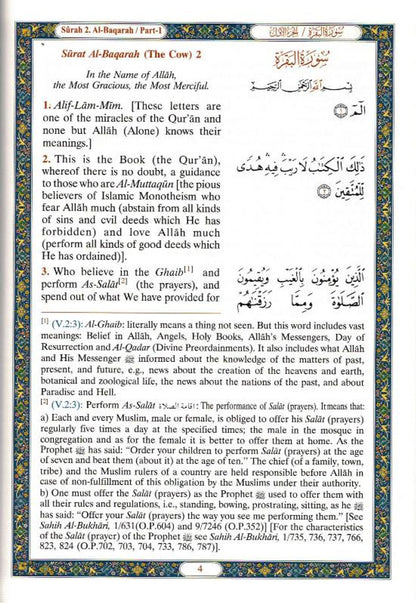 Sûrah 2. Al-Baqarah / Part-1
سورة البقرة / الجزء الأول
Sûrat Al-Baqarah (The Cow) 2
سُورَةُ البَقَرَة
In the Name of Allâh,
the Most Gracious, the Most Merciful.
بِسْمِ اللَّهِ الرَّحْمَٰنِ الرَّحِيمِ
1. Alif-Lâm-Mîm. [These letters are
one of the miracles of the Qur'ân and
none but Allâh (Alone) knows their
meanings.]
الٓمٓ ١
2. This is the Book (the Qur'ân),
whereof there is no doubt, a guidance
to those who are Al-Muttaqûn [the pious
believers of Islamic Monotheism who
fear Allâh much (abstain from all kinds
of sins and evil deeds which He has
forbidden) and love Allâh much
(perform all kinds of good deeds which
He has ordained)].
ذَٰلِكَ ٱلْكِتَٰبُ لَا رَيْبَ ۛ فِيهِ ۛ هُدًى
لِّلْمُتَّقِينَ ٢
3. Who believe in the Ghaib[1] and
perform As-Salât[2] (the prayers), and
spend out of what We have provided for
ٱلَّذِينَ يُؤْمِنُونَ بِٱلْغَيْبِ وَيُقِيمُونَ
ٱلصَّلَوٰةَ وَمِمَّا رَزَقْنَٰهُمْ
[1] (V.2:3): Al-Ghaib: literally means a thing not seen. But this word includes vast
meanings: Belief in Allâh, Angels, Holy Books, Allâh's Messengers, Day of
Resurrection and Al-Qadar (Divine Preordainments). It also includes what Allâh
and His Messenger ﷺ informed about the knowledge of the matters of past,
present, and future, e.g., news about the creation of the heavens and earth,
botanical and zoological life, the news about the nations of the past, and about
Paradise and Hell.
[2] (V.2:3): Perform As-Salât إقامة الصلاة: The performance of Salât (prayers). It means that:
a) Each and every Muslim, male or female, is obliged to offer his Salât (prayers)
regularly five times a day at the specified times; the male in the mosque in
congregation and as for the female it is better to offer them at home. As the
Prophet ﷺ has said: "Order your children to perform Salât (prayers) at the age
of seven and beat them (about it) at the age of ten." The chief (of a family, town,
tribe) and the Muslim rulers of a country are held responsible before Allâh in
case of non-fulfillment of this obligation by the Muslims under their authority.
b) One must offer the Salât (prayers) as the Prophet ﷺ used to offer them with
all their rules and regulations, i.e., standing, bowing, prostrating, sitting, as he ﷺ
has said: "Offer your Salât (prayers) the way you see me performing them." [See
Sahih Al-Bukhâri, 1/631(O.P.604) and 9/7246 (O.P.352)] [For the characteristics
of the Salât (prayer) of the Prophet ﷺ see Sahih Al-Bukhâri, 1/735, 736, 737, 766,
823, 824 (O.P.702, 703, 704, 733, 786, 787)].
4